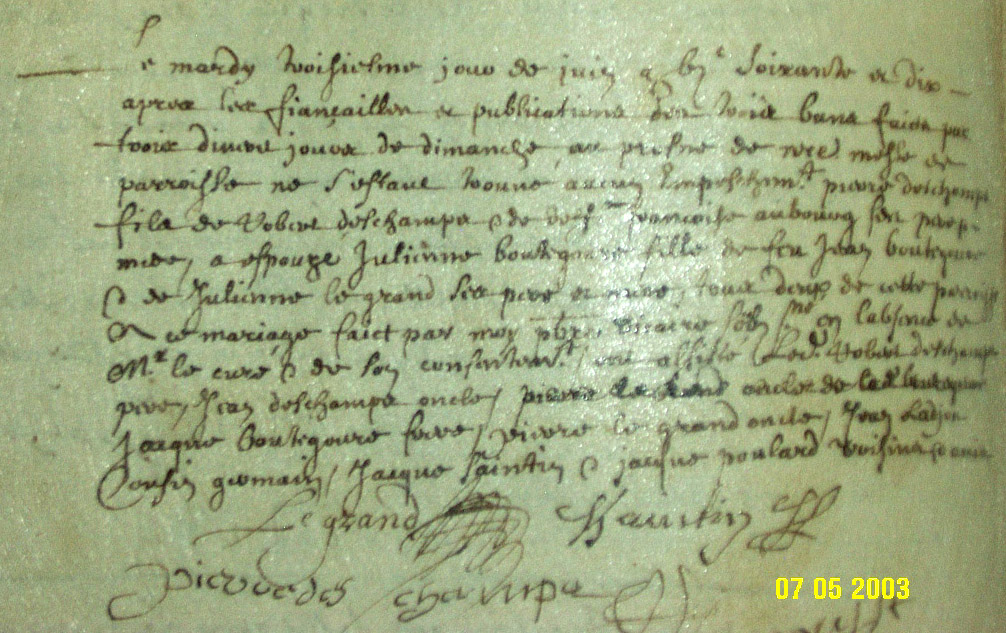 Le mardy troisiesme jour de juin g bjc Soixante et dix
apres les fiançailles et publications des trois bans faicts par
trois divers jours de dimanche au prosne de nre messe de
parroisse ne s'estant trouvé aucun empeschemt pierre deschamps
fils de Robert deschamps & de françoise aubourg ses pere
mere, a espouzé Julienne boutegourre fille de feu Jean boutegourre
& de Julienne le grand ses pere et mere, tous deux de cette
ce mariage faict par moy pbre vicaire en l'absence de
Mr le curé & de son consentemt, ont assisté led. Robert deschamps
pere, Jean deschamps oncle, pierre oncle de lad. boutegourre
Jacque boutegourre frere, pierre le grand oncle, Jean
Cousin germain, Jacque Saintin & jacque poulard voisins
Le grand Saintin
Pierre des Champs
07 05 2003